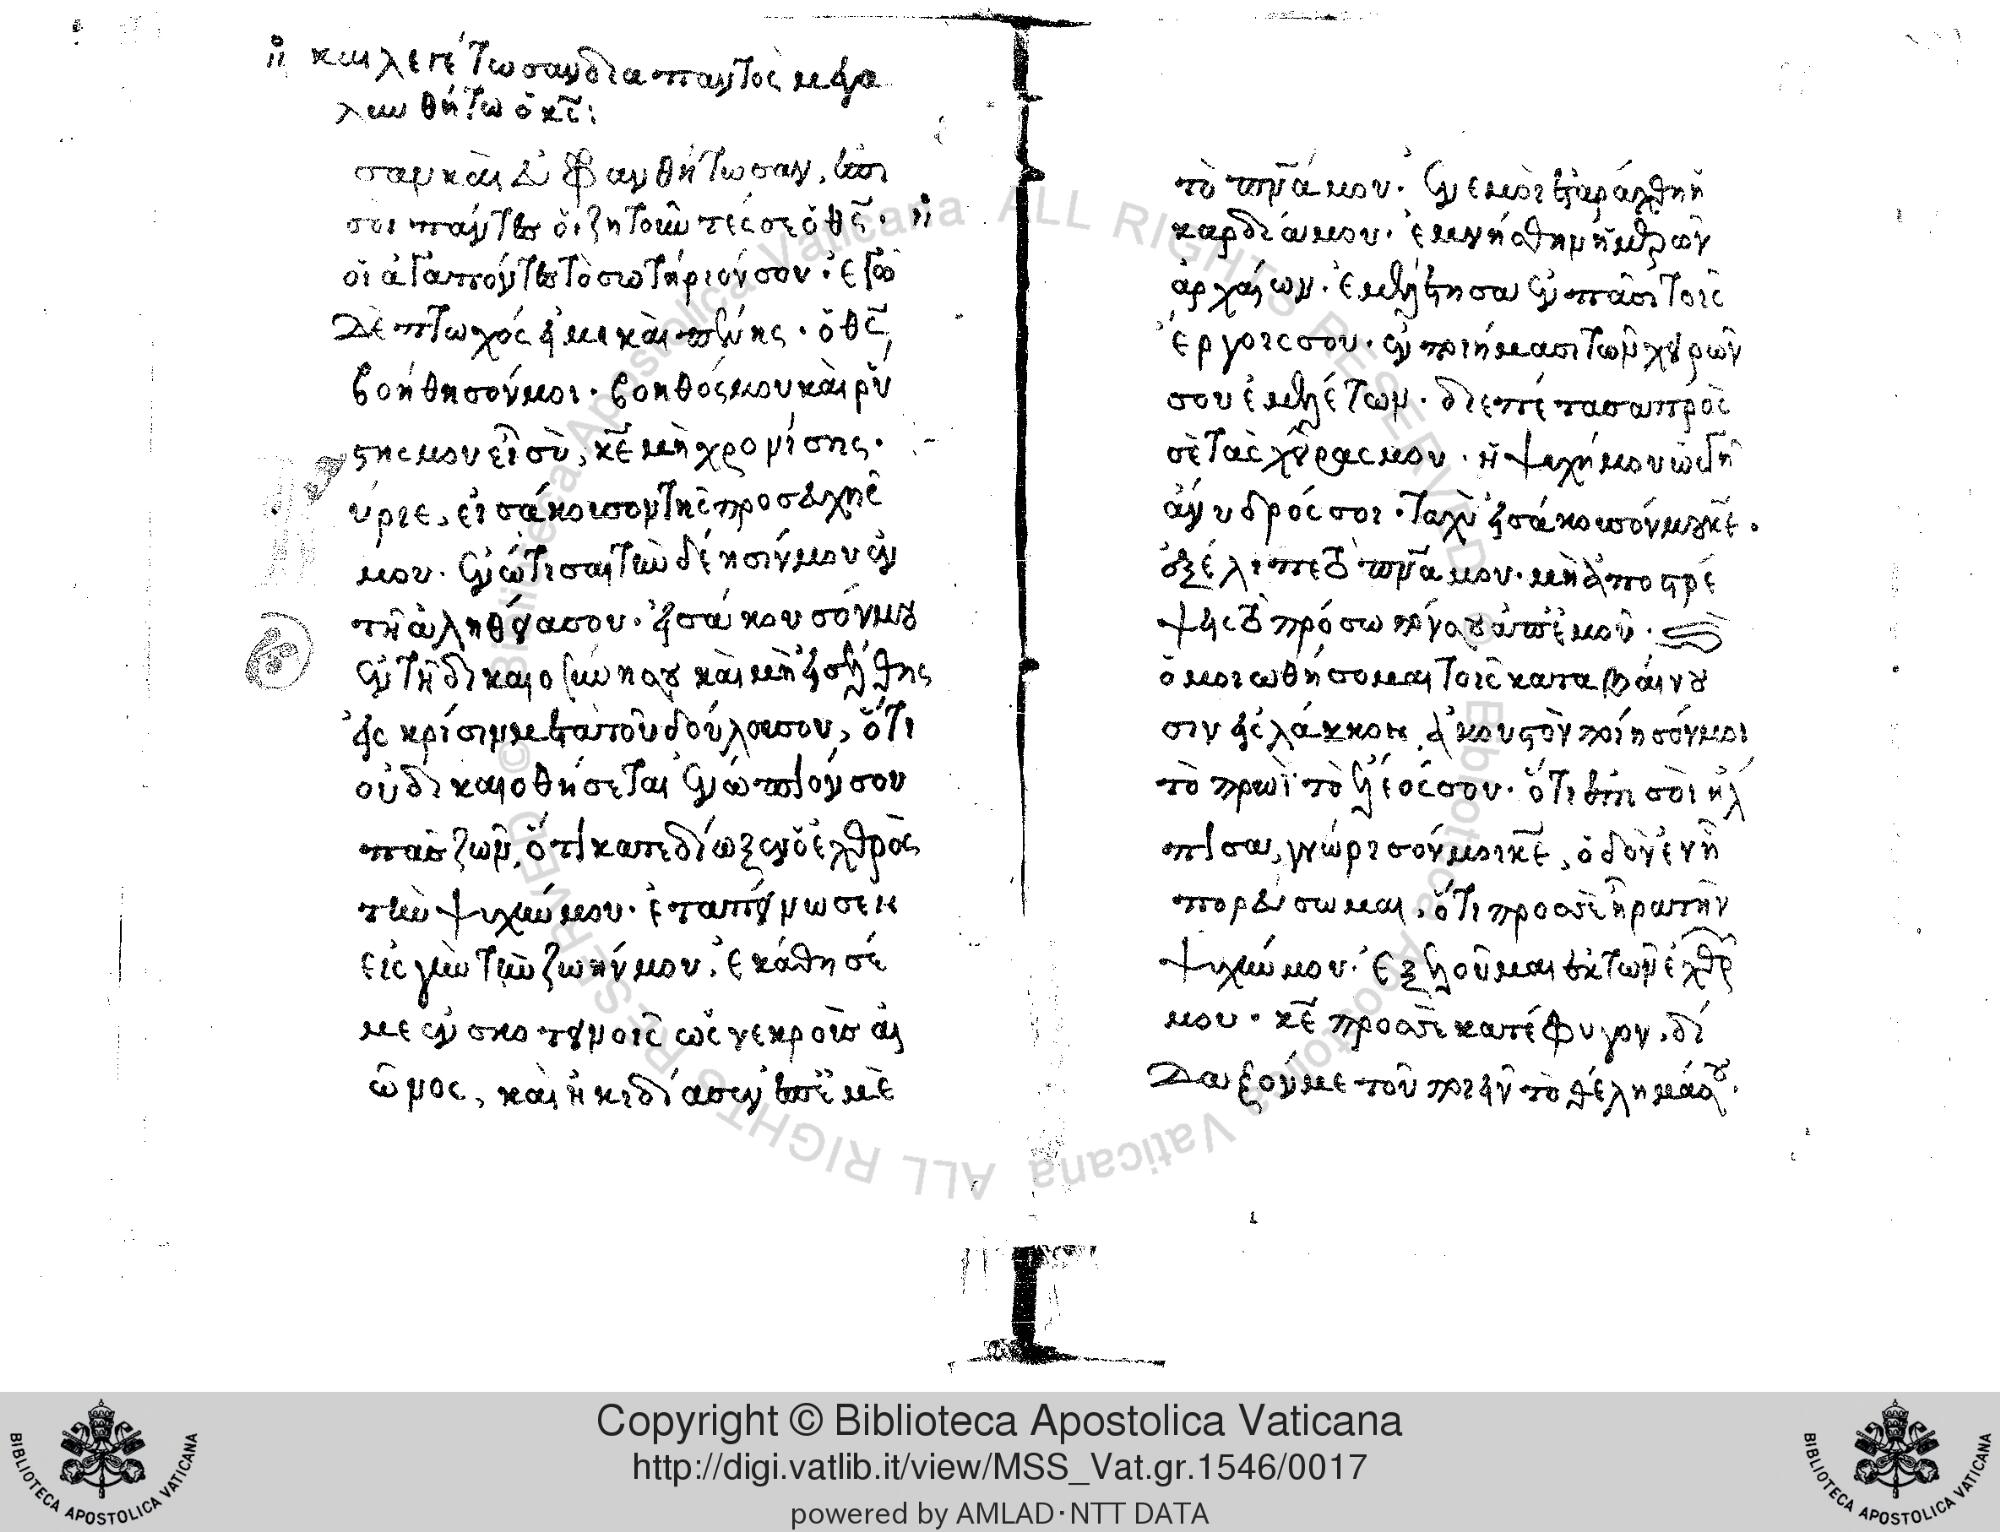 καὶ λεγέτωσαν διαπαντὸς μεγα
λυνθήτω ὁ κ̅ς̅:
σαν καὶ εὐφρανθήτωσαν, ἐπι
σοι πάντες οἱ ζητοῦντές σε ὁ θ̅ς̅·
οἱ ἀγαπόντες τὸ σωτήριόν σου· ἐγὼ
δὲ πτωχός εἰμι καὶ πένης· ὁ θ̅ς̅
βοήθησόν μοι· βοηθός μου καὶ ρύ
στης μου εἶ σὺ, κ̅ε̅ μὴ χρονίσης·
ύριε, εἰσάκουσον τῆς προσευχῆς
μου· ἐνώτισαι τὴν δέησίν μου ἐν
τῆ ἀληθεία σου· εἰσάκουσόν μου
ἐν τῆ δικαιοσύνη σου καὶ μὴ εἰσέλθης
εἰς κρίσιν μετὰ τοῦ δούλου σου, ὅτι
οὐ δικαιοθήσεται ἐνώπιόν σου
πᾶς ζῶν, ὅτι κατεδίωξεν ὁ ἐχθρὸς
τὴν ψυχήν μου· ἐταπείνωσεν
εἰς γῆν τὴν ζωήν μου, ἐκάθησέ
με ἐν σκοτεινοῖς ὡς νεκροὺς αἰ
ῶνος, καὶ ἠκιδίασεν ἐπ' ἐμὲ
τὸ πν̅ά μου· ἐν ἐμοὶ ἐταράχθη ἡ
καρδία μου· ἐμνήσθην ἡμερῶν
ἀρχαίων· ἐμελέτησα ἐν πᾶσι τοῖς
ἔργοις σου· ἐν ποιήμασι τῶν χειρῶν
σου ἐμελέτων· διεπέτασα πρὸς
σὲ τὰς χεῖρας μου· ἡ ψυχή μου ὡς γῆ
ἄνυδρός σοι· ταχὺ εἰσάκουσόν μου κ̅ε̅·
ἐξέλιπε τὸ πν̅ά μου· μὴ ἀποστρέ
ψεις τὸ πρόσωπόν σου ἀπ' ἐμοῦ·
ὁμοιωθήσομαι τοῖς καταβαίνου
σιν εἰς λάκκον, ἀκουστὸν ποίησόν μοι
τὸ πρωῒ τὸ ἔλεός σου· ὅτι ἐπι σοὶ ἤλ
πισα, γνώρισόν μοι κ̅ε̅, ὁδὸν ἐν ἧ
πορεύσωμαι, ὅτι προς σὲ ἦρα τὴν
ψυχήν μου· ἐξελοῦ με ἐκ τῶν ἐχθρῶν
μου· κ̅ε̅ προς σὲ κατέφυγον, δί
δαξόν με τοῦ ποιεῖν τὸ θέλημά σου·
Copyright © Biblioteca Apostolica Vaticana
http://digi.vatlib.it/view/MSS_Vat.gr.1546/0017
powered by AMLAD·NTT DATA
BIBLIOTECA APOSTOLICA VATICANA
BIBLIOTECA APOSTOLICA VATICANA